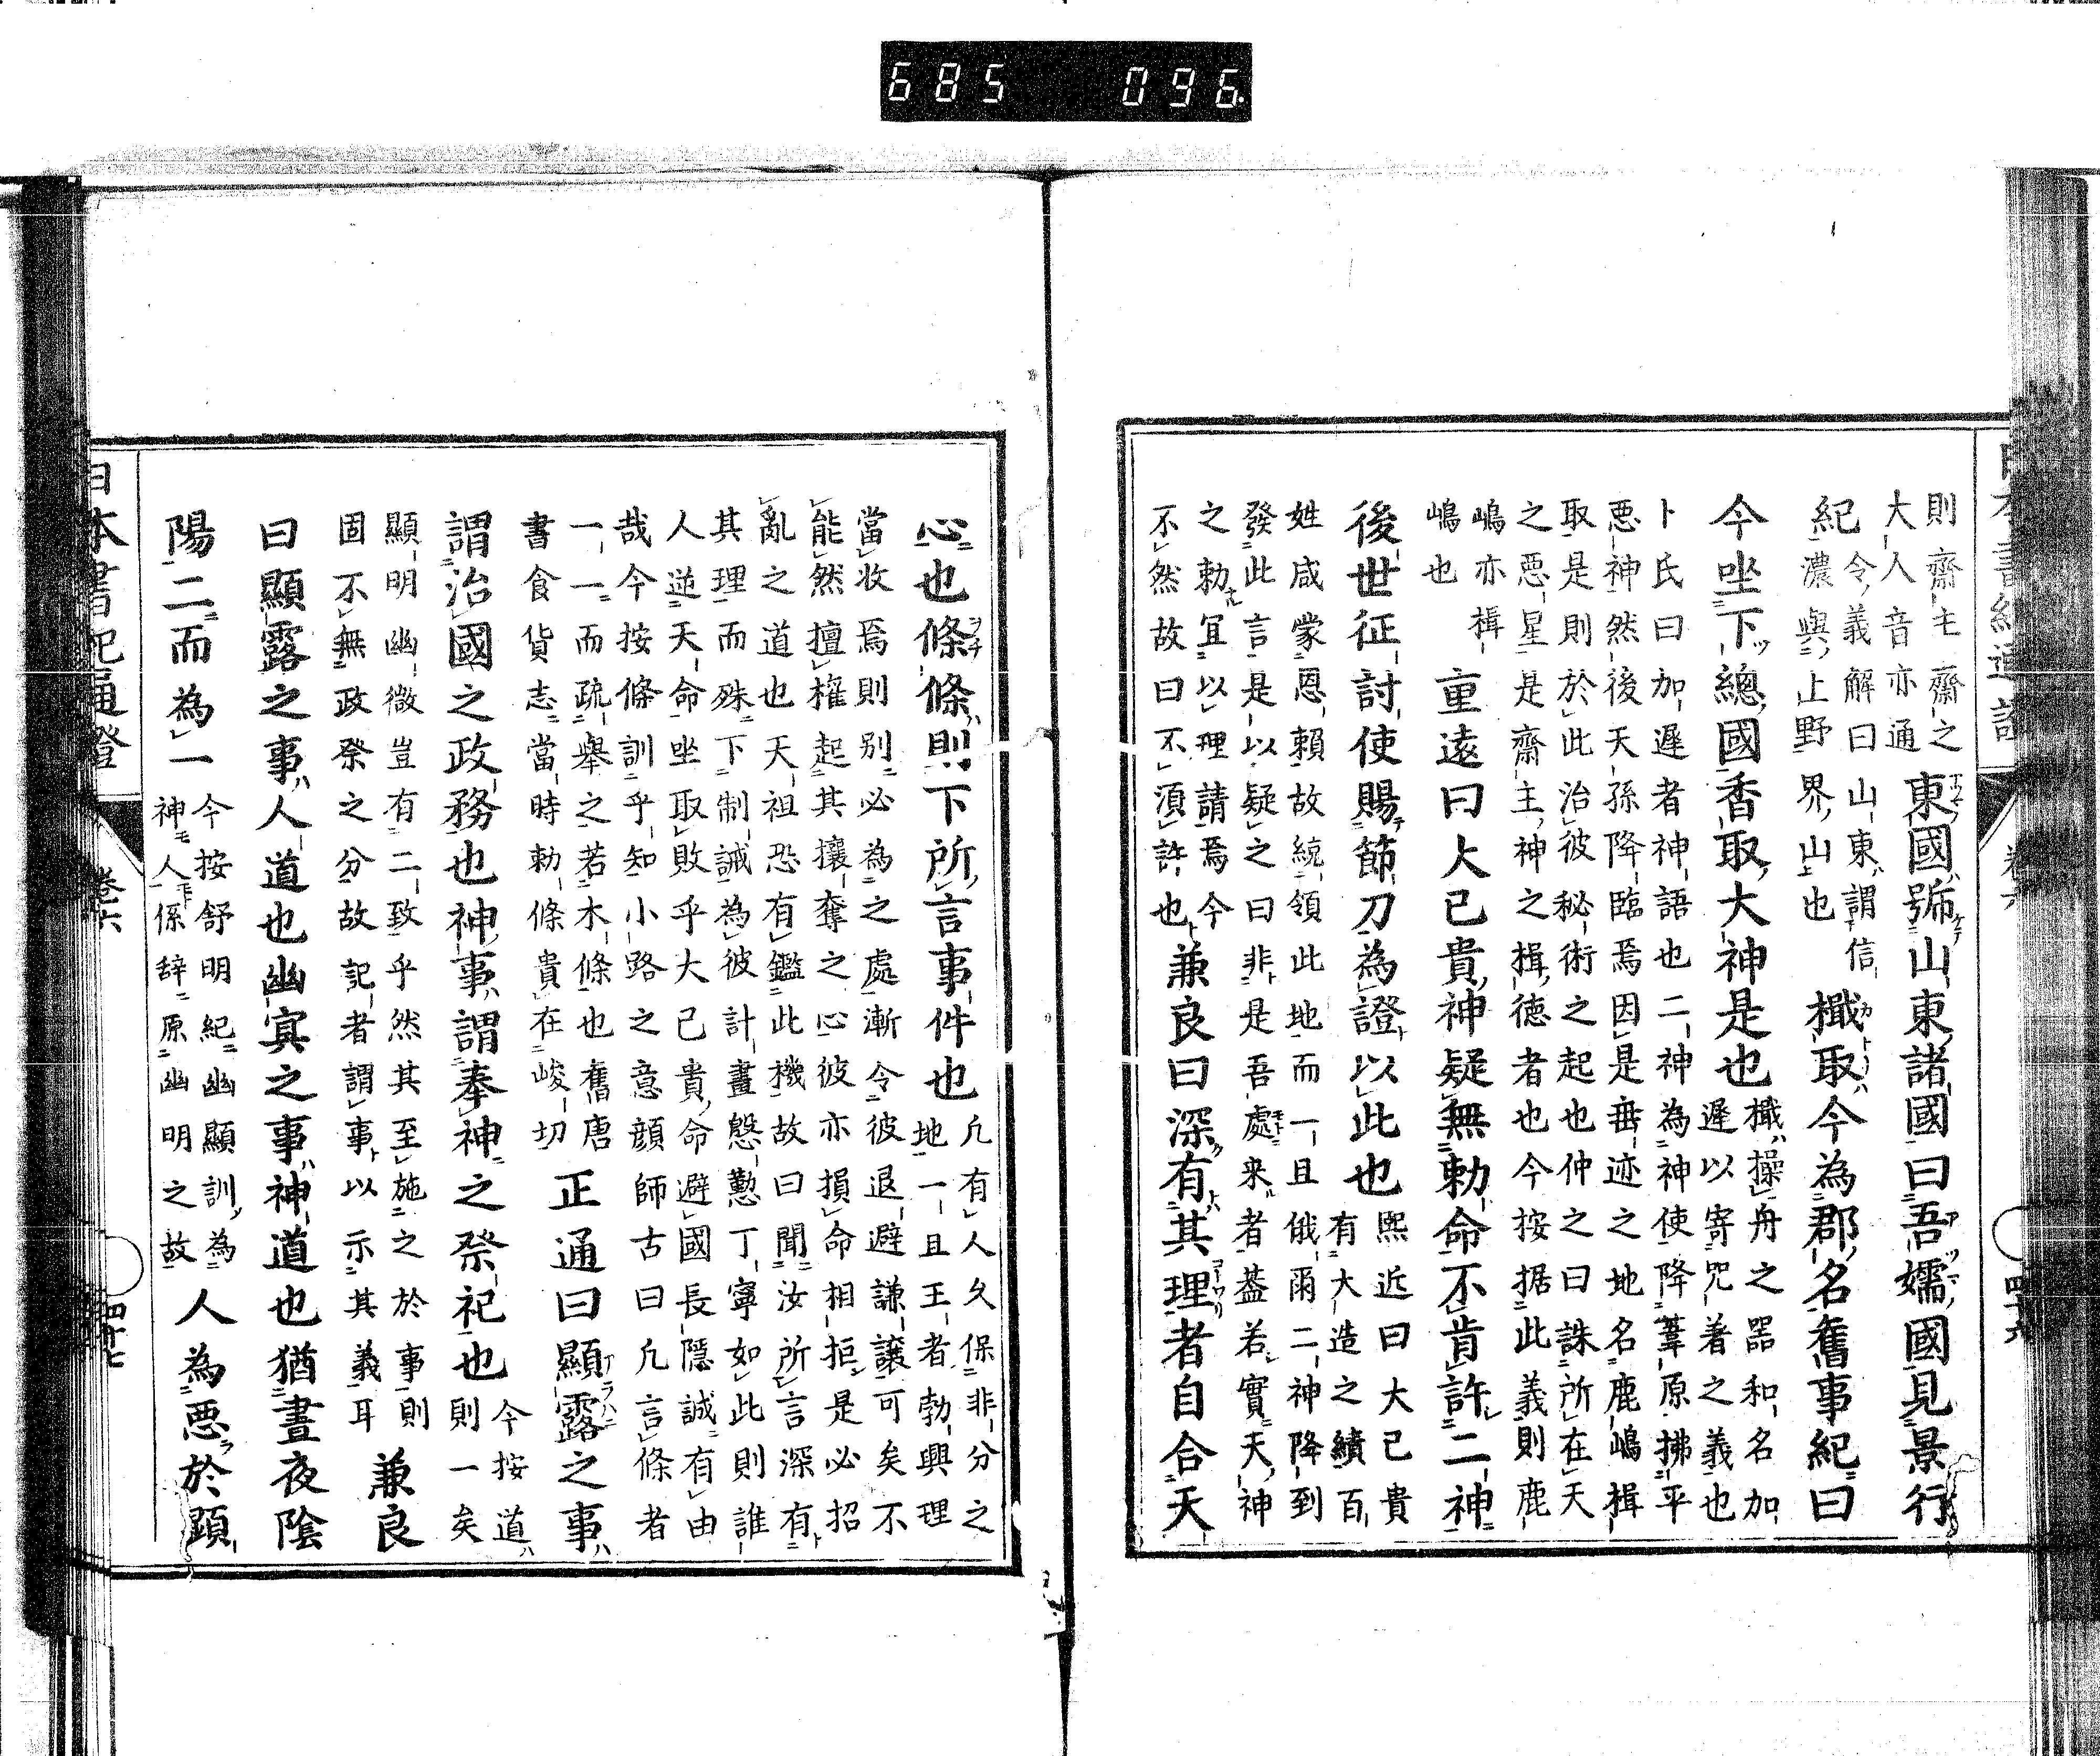 685 096
則齋毛齋之
大人音亦通
東國號山東諸國曰吾嬬國見景行
紀
令義解曰山東謂信
濃與上野界山也
檝取今為郡名舊事紀曰
今坐下總國香取大神是也
檝操舟之器和名加
遲以寄咒著之義也
卜氏曰加遲者神語也二神為神使降葦原拂平
悪神然後天孫降臨焉因是垂迹之地名鹿嶋楫
取是則於此治彼秘術之起也仲之曰誅所在天
之悪星是齋主神之楫徳者也今按据此義則鹿
嶋亦楫
嶋也
重遠曰大己貴神疑無勅命不肯許二神
後世征討使賜節刀為證以此也
熙近曰大己貴
有大造之績百
姓咸蒙恩賴故統領此地而一且俄爾二神降到
發此言是以疑之曰非是吾處来者葢若實天神
之勅宜以理請焉今
不然故曰不湏許也
兼良曰深有其理者自合天
日本書紀通證 卷六 四十六
心也條條則下所言事件也
凢有人久保非分之
地一且王者勃興理
當收焉則别必為之處漸令彼退避謙讓可矣不
能然擅權起其攘奪之心彼亦損命相拒是必招
亂之道也天祖恐有鑑此機故曰聞汝所言深有
其理而殊下制誡為彼計畫慇懃丁寧如此則誰
人逆天命坐取敗乎大己貴命避國長隱誠有由
哉今按條訓乎知小路之意顔師古曰凢言條者
一一而疏舉之若木條也舊唐
書食貨志當時勅條貴在峻切
正通曰顯露之事
謂治國之政務也神事謂奉神之祭祀也
今按道
則一矣
顯明幽微豈有二致乎然其至施之於事則
固不無政祭之分故記者謂事以示其義耳
兼良
曰顯露之事人道也幽寘之事神道也猶晝夜陰
陽二而為一
今按舒明紀幽顯訓為
神人係辞原幽明之故
人為悪於顕
日本書紀通證 卷六 四十七